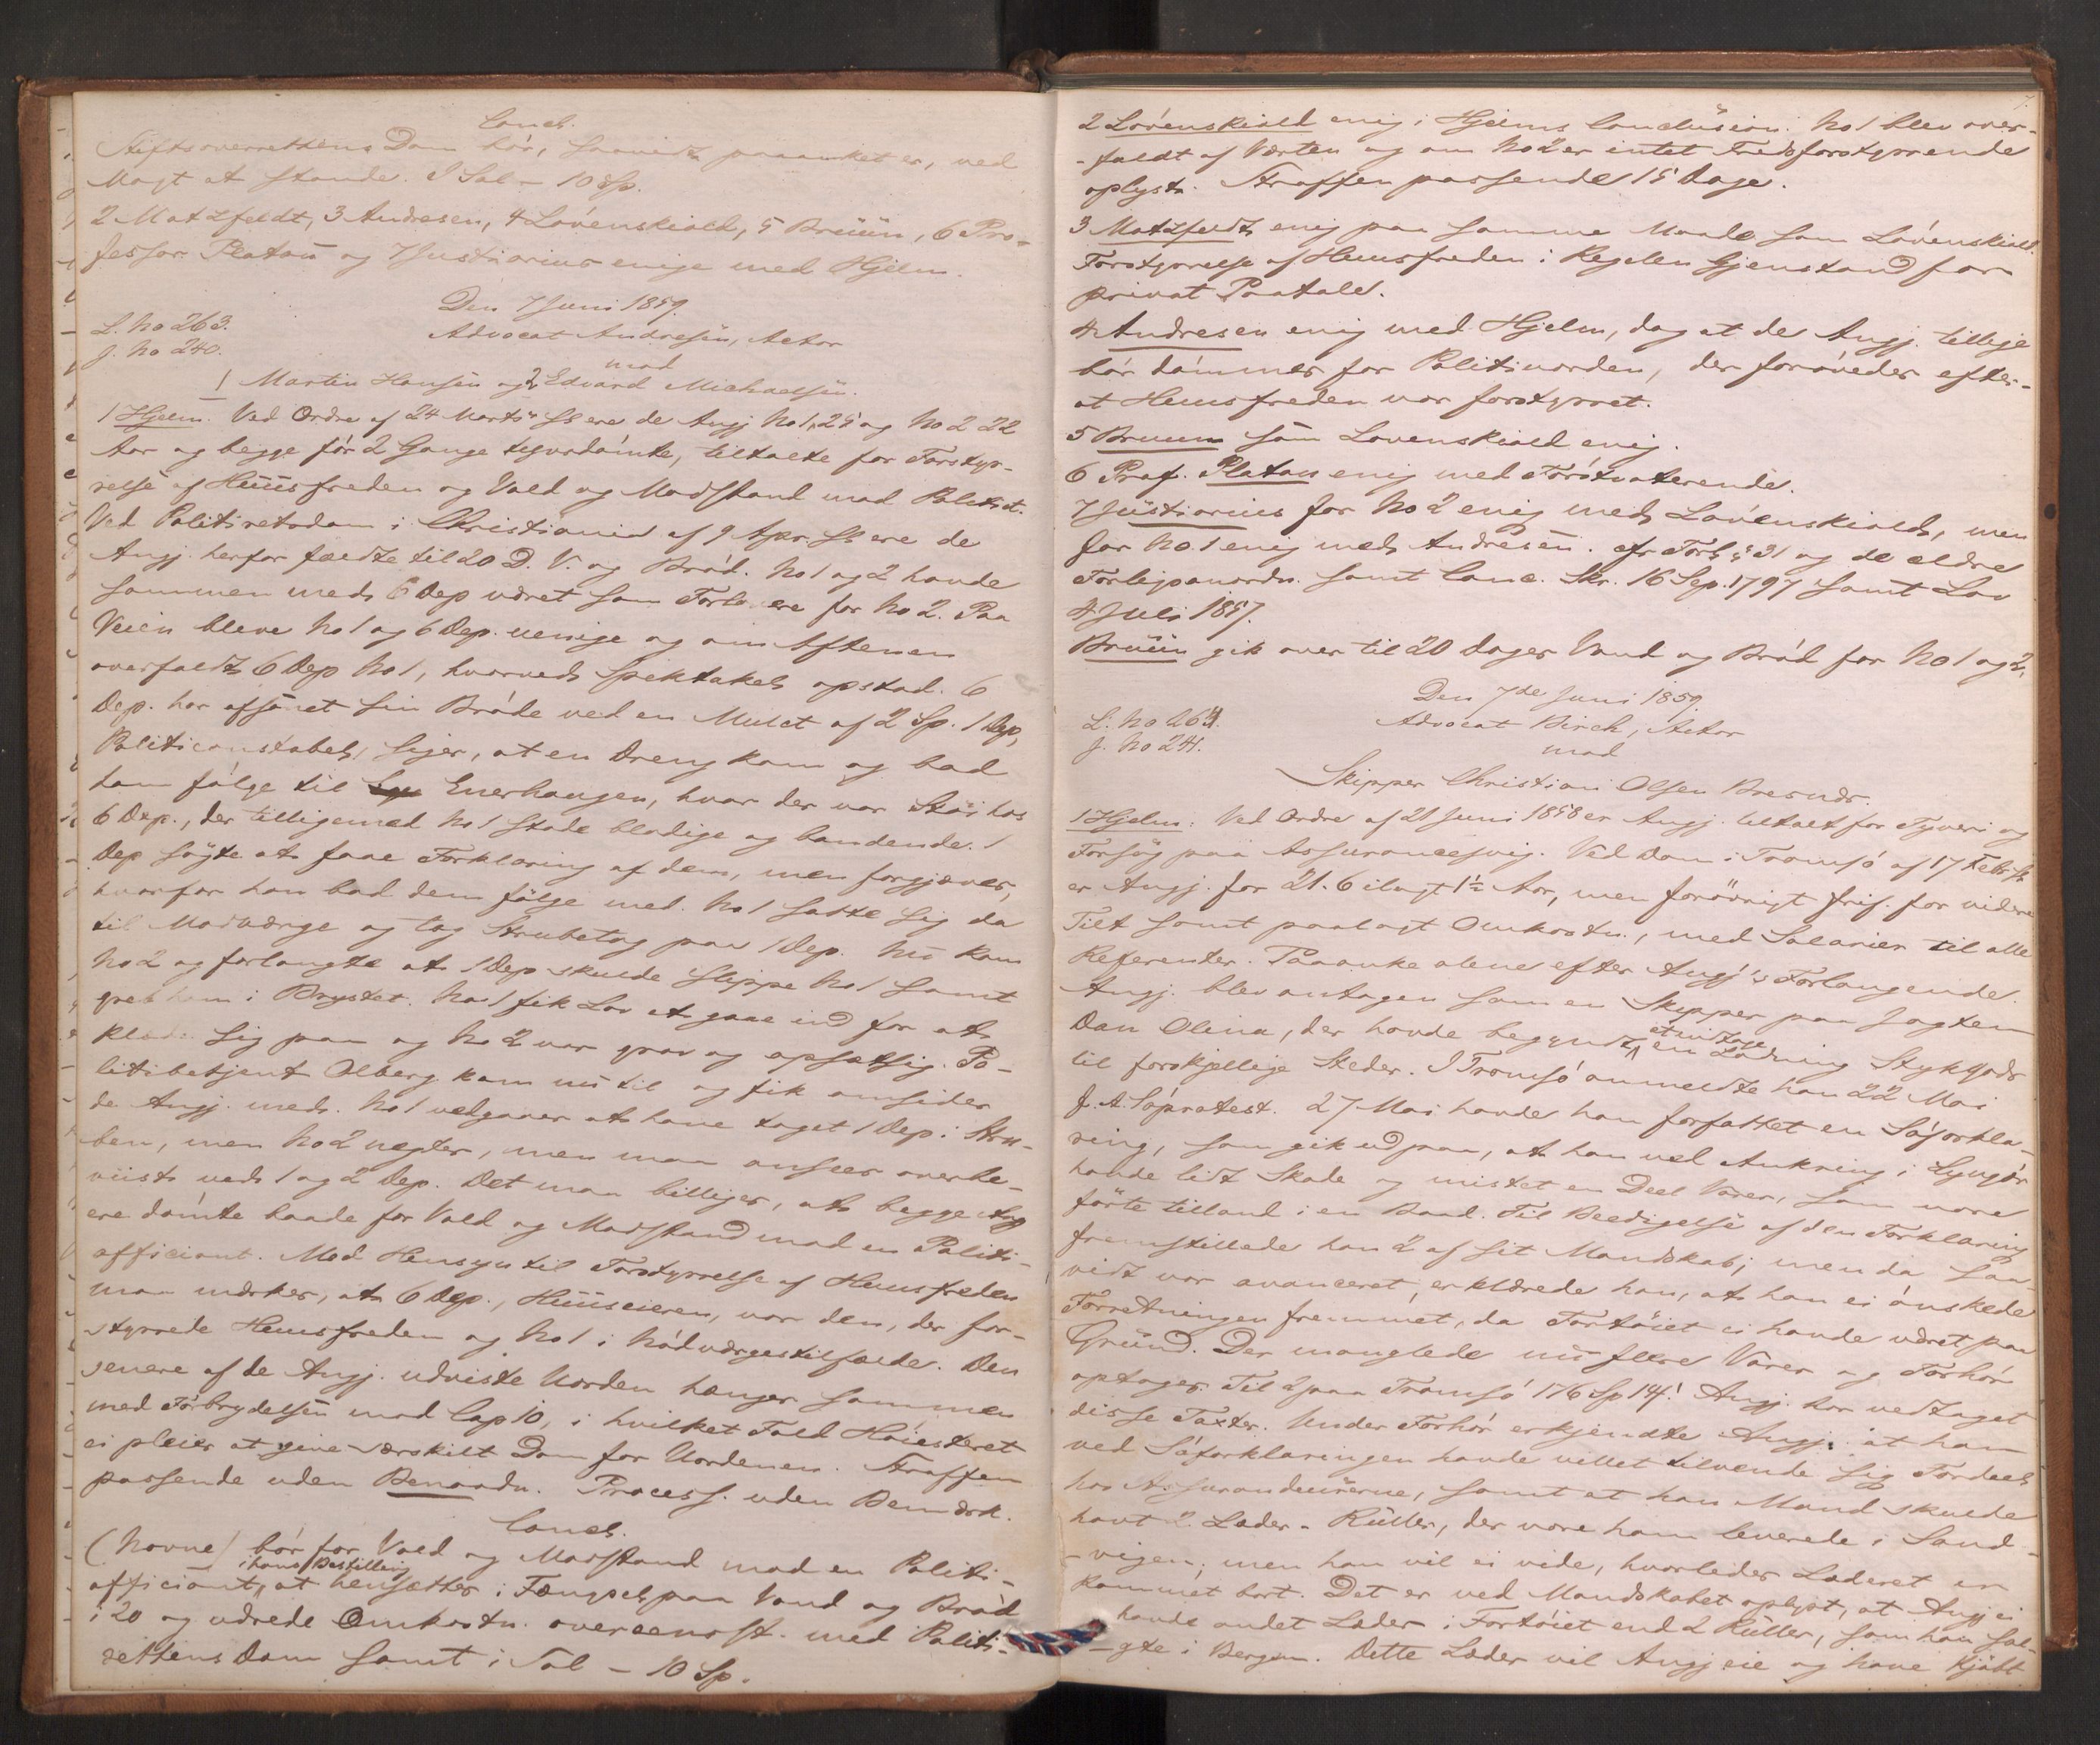 Concl.
Stiftsoverrettens Dom bör, saavidt paaanket er, ved
Magt at stande. I Sal – 10 Sp.
2 Motzfeldt, 3 Andresen, 4 Lövenskiold, 5 Bruun, 6 Pro-
fessor Platou og Justiarius enige med Hjelm.
Den 7 Juni 1859.
L. No 263. Advocat Andresen, Actor
J. No 240. mod
1 Martin Hansen og 2 Edvard Michaelsen.
1 Hjelm. Ved Ordre af 24 Marts ds ere de Angj No 1, 25 og No 2 22
Aar og begge för 2 Gange tyvsdömte, tiltalte for Forstyr-
relse af Huusfreden og Vold og Modstand mod Politiet.
Ved Politiretsdom i Christiania af 9 Apr. ds ere de
Angj. herfor fældte til 20 D. V. og Bröd. No 1 og 2 havde
sammen med 6 Dep været som Forlovere for No 2. Paa
Veien bleve No 1 og 6 Dep. uenige og om Aftenen
overfaldt 6 Dep No 1, hvorved Spektakel opstod. 6
Dep. har afsonet sin Bröde ved en Mulct af 2 Sp. 1 Dep,
Politiconstabel, siger, at en Dreng kom og bad
ham fölge til Enerhaugen, hvor der var Stöi hos
6 Dep., der tilligemed No 1 stode blodige og bandende. 1
Dep sögte at faae Forklaring af dem, men forgjæves,
hvorfor han bad dem fölge med. No 1 satte sig da
til Modværge og tog Strubetag paa 1 Dep. Nu kom
No 2 og forlangte at 1 Dep skulde slippe No 1 samt
greb ham i Brystet. No 1 fik Lov at gaae ind for at
klæde sig paa og No 2 var grov og opsætsig. Po-
litibetjent Olberg kom nu til og fik omsider
de Angj. med. No 1 vedgaaer at have taget 1 Dep i Stru-
ben, men No 2 negter, men maa ansees overbe-
viist ved 1 og 2 Dep. Det maa billiges, at begge
ere dömte baade for Vold og Modstand mod en Politi-
officiant. Med Hensyn til Forstyrrelse af Huusfreden
maa mærkes, at 6 Dep., Huuseieren, var den, der for-
styrrede Huusfreden og No 1 i Nödværgestilfælde. Den
senere af de Angj. udviste Uorden hænger sammen
med Forbrydelsen mod Cap 10, i hvilket Fald Höiesteret
ei pleier at give særskilt Dom for Uordenen. Straffen
passende uden Benaadn. Process. uden Bemærk.
Concl.
(Navne) bör for Vold og Modstand mod en Politi-
officiant i hans Bestilling at hensættes i Fængsel paa Vand og Bröd
i 20 og udrede Omkostn. overeensst. med Politi-
rettens Dom samt i Sal – 10 Sp.
2 Lövenskiold enig i Hjelms Conclusion. No 1 blev over-
faldt af Værten og om No 2 er intet Fredsforstyrrende
oplyst. Straffen passende 15 Dage.
3 Motzfeldt enig paa samme Maade som Lövenskiold.
Forstyrrelse af Huusfreden i Regelen Gjenstand for
privat Paatale.
4 Andresen enig med Hjelm, dog at de Angj. tillige
bör dömmes for Politiuorden, der forövedes efter
at Huusfreden var forstyrret.
5 Bruun som Lövenskiold enig.
6 Prof. Platou enig med Förstvoterende.
7 Justiarius for No 2 enig med Lövenskiold, men
for No 1 enig med Andresen. cfr Forl. § 31 og de ældre
Forligsanordn. samt Canc. Skr. 16 Sep. 1797 samt Lov
4 Juli 1857.
Bruun gik over til 20 Dages Vand og Bröd for No 1 og 2.
Den 7de Juni 1859.
L. No 264. Advocat Birch, Actor
J. No 241. mod
Skipper Christian Olsen Bresnæs.
1 Hjelm: Ved Ordre af 21 Juni 1858 er Angj. tiltalt for Tyveri og
Forsög paa Assurancesvig. Ved Dom i Tromsö af 17 Febr. ds
er Angj. for 21. 6 ilagt 1½ Aar, men forövrigt frif. for videre
Tilt samt paalagt Omkostn., med Salarier til alle
Referenter. Paaanke alene efter Angj's Forlangende.
Angj. blev antagen som en Skipper paa Jagten
Dan Olina, der havde begyndt at indtage en Ladning Stykgods
til forskjellige Steder. I Tromsö anmeldte han 22 Mai
f. A. Söprotest. 27 Mai havde han forfattet en Söforkla-
ring, som gik ud paa, at han ved Ankring i Lyngör
havde lidt Skade og mistet en Deel Varer, som vare
förte tilland i en Baad. Til Beedigelse af den Forklaring
fremstillede han 2 af sit Mandskab; men da saa-
vidt var avanceret, erklærede han, at han ei önskede
Forretningen fremmet, da Fartöiet ei havde været paa
Grund. Der manglede nu flere Varer og Forhör
optoges. Til 2 paa Tromsö 176 Sp 14 ſ. Angj. har vedtaget
disse Taxter. Under Forhör erkjendte Angj. at han
ved Söforklaringen havde villet tilvende sig Fordeel
hos Assurandeurerne, samt at han Mand skulde
havt 2 Læder-Ruller, der vare ham leverede i Sand-
vigen, men han vil ei vide, hvorledes Læderet er
kommet bort. Det er ved Mandskabet oplyst, at Angj ei
havde andet Læder i Fartöiet end 2 Ruller, som han sol-
gte i Bergen. Dette Læder vil Angj eie og have kjöbt